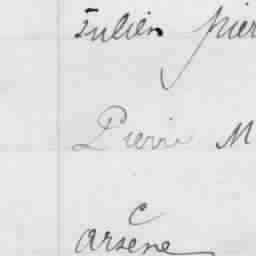 Julien pier
Pierre M
c
arsene